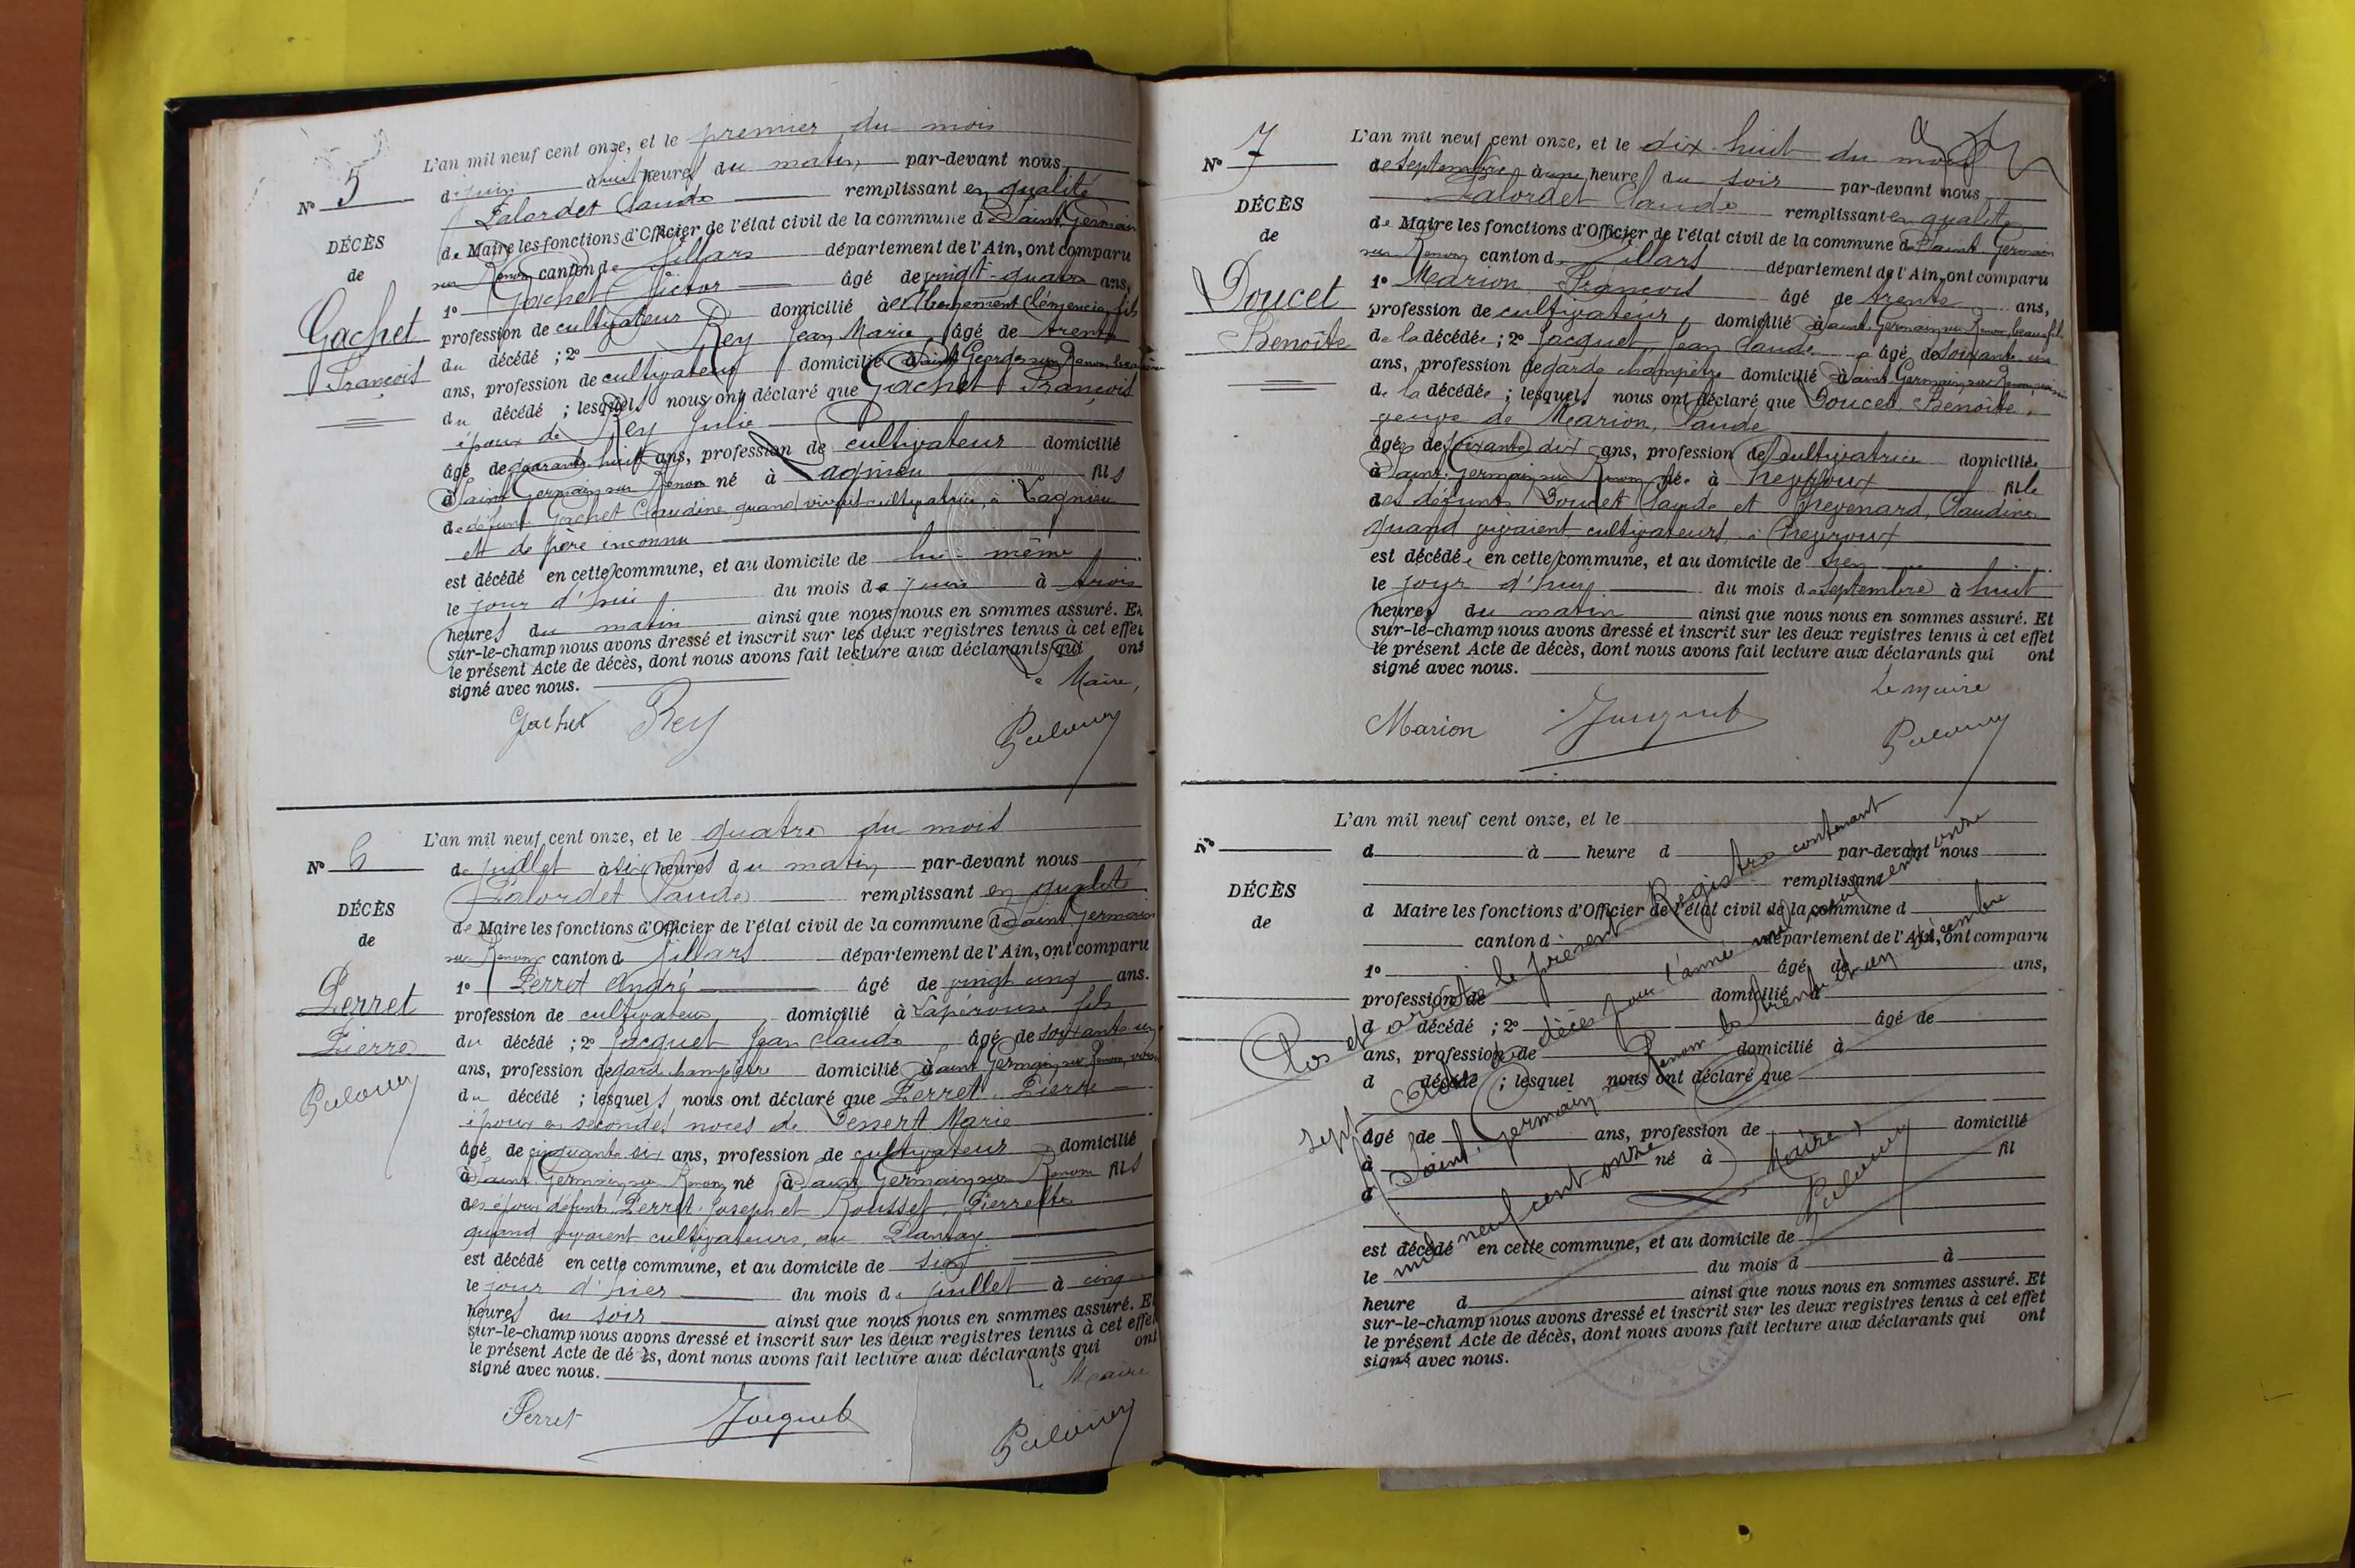 N° 5
DÉCÈS
de
Gachet
François
L'an mil neuf cent onze, et le premier du mois
de juin à huit heures du matin, par-devant nous
Palordet Claude remplissant en qualité
de Maire les fonctions d'Officier de l'état civil de la commune de Saint Germain
sur Renon canton de Villars département de l'Ain, ont comparu
1° Gachet Victor âgé de vingt-quatre ans,
profession de cultivateur domicilié à fils
du décédé ; 2° Rey Jean Marie âgé de trente
ans, profession de cultivateur domicilié à Saint Georges sur Renon, beau-frère
du décédé ; lesquels nous ont déclaré que Gachet François
époux de Rey Julie
âgé de quarante huit ans, profession de cultivateur domicilié
à Saint Germain sur Renon né à Lagnieu fils
de défunte Gachet Claudine quand vivait cultivatrice, à Lagnieu
et de père inconnu
est décédé en cette commune, et au domicile de lui-même
le jour d'hui du mois de juin à trois
heures du matin ainsi que nous nous en sommes assuré. Et
sur-le-champ nous avons dressé et inscrit sur les deux registres tenus à cet effet
le présent Acte de décès, dont nous avons fait lecture aux déclarants qui ont
signé avec nous.
Le Maire,
Gachet Rey
N° 6
DÉCÈS
de
Perret
Pierre
L'an mil neuf cent onze, et le quatre du mois
de juillet à six heures du matin par-devant nous
Palordet Claude remplissant en qualité
de Maire les fonctions d'Officier de l'état civil de la commune de Saint Germain
sur Renon canton d Villars département de l'Ain, ont comparu
1° Perret André âgé de vingt cinq ans.
profession de cultivateur domicilié à Lapérouse fils
du décédé ; 2° Jacquet Jean Claude âgé de soixante un
ans, profession de garde champêtre domicilié à Saint Germain sur Renon, voisin
du décédé ; lesquels nous ont déclaré que Perret Pierre
époux en secondes noces de Marie
âgé de cinquante six ans, profession de cultivateur domicilié
à Saint Germain sur Renon né à Saint Germain sur Renon fils
des époux défunts Perret Joseph et Rousset Pierrette
quand vivaient cultivateurs, au Plantay
est décédé en cette commune, et au domicile de sien
le jour d'hier du mois de juillet à cinq
heures du soir ainsi que nous nous en sommes assuré. Et
sur-le-champ nous avons dressé et inscrit sur les deux registres tenus à cet effet
le présent Acte de décès, dont nous avons fait lecture aux déclarants qui ont
signé avec nous.
Le Maire
Perret Jacquet
N° 7
DÉCÈS
de
Doucet
Benoîte
L'an mil neuf cent onze, et le dix-huit du mois
de septembre à une heure du soir par-devant nous
Palordet Claude remplissant en qualité
de Maire les fonctions d'Officier de l'état civil de la commune de Saint Germain
sur Renon canton d Villars département de l'Ain, ont comparu
1° Marion François âgé de trente ans,
profession de cultivateur, domicilié à Saint Germain sur Renon beau-fils
de la décédée ; 2° Jacquet Jean Claude âgé de soixante un
ans, profession de garde champêtre domicilié à Saint Germain sur Renon voisin
de la décédée ; lesquels nous ont déclaré que Doucet Benoîte,
veuve de Marion, Claude
âgée de soixante dix ans, profession de cultivatrice domiciliée
à Saint Germain sur Renon née à Cheyroux fille
des défunts Doucet Claude et Chevenard, Claudine
quand vivaient cultivateurs, à Cheyroux
est décédée en cette commune, et au domicile de sien
le jour d'huy du mois de septembre à huit
heures du matin ainsi que nous nous en sommes assuré. Et
sur-le-champ nous avons dressé et inscrit sur les deux registres tenus à cet effet
le présent Acte de décès, dont nous avons fait lecture aux déclarants qui ont
signé avec nous.
Le maire
Marion Jacquet
N°
DÉCÈS
de
L'an mil neuf cent onze, et le
d à heure d par-devant nous
remplissant
d Maire les fonctions d'Officier de l'état civil de la commune d
canton d département de l'Ain, ont comparu
1° âgé de ans,
profession de domicilié à
d décédé ; 2° âgé de
ans, profession de domicilié à
d décédé ; lesquel nous ont déclaré que
âgé de ans, profession de domicilié
à né à fil
d
est décédé en cette commune, et au domicile de
le du mois d à
heure d ainsi que nous nous en sommes assuré. Et
sur-le-champ nous avons dressé et inscrit sur les deux registres tenus à cet effet
le présent Acte de décès, dont nous avons fait lecture aux déclarants qui ont
signé avec nous.
Clos et arrêté le présent Registre contenant
sept actes de décès pour l'année mil neuf cent onze
Saint Germain Renom le trente et un décembre
mil neuf cent onze
Maire,